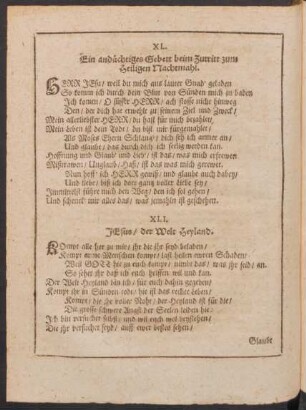 XL.
Ein andächtiges Gebett beym Zutritt zum
Heiligen Nachtmahl.
HERR JEsu/ weil du mich aus lauter Gnad geladen
So komm ich durch dein Blut von Sünden mich zu baden
Ich komm/ O süsser HERR/ ach stosse nicht hinweg
Den/ der dich hat erwehlt zu seinem Ziel und Zweck/
Mein allerliebster HERR/ du hast für mich bezahlet/
Mein Leben ist dein Tode/ du bist mir fürgemahlet/
Als Moses Ehern Schlang/ dich seh ich immer an/
Und glaube/ das durch dich ich seelig werden kan.
Hoffnung und Glaub und Liebe/ ist das/ was mich erfrewet
Mißtrawen/ Unglaub/ Haß/ ist das was mich gerewet.
Nun hoff/ ich HERR/ gewiß/ und glaube auch dabey/
Und liebe/ biß ich dort gantz voller Liebe sey/
Inmittelst führe mich den Weg/ den ich sol gehen/
Und schenck mir alles das/ was jemahln ist geschehen.
XLI.
JEsus/ der Welt Heyland.
KOmpt alle her zu mir/ ihr die ihr seyd beladen/
Kompt arme Menschen kompt/ last heilen ewren Schaden/
Weil GOTT
So sehet ihr daß ich euch helffen wil und kan.
Der Welt Heyland bin ich/ für euch dahin gegeben/
Kompt ihr in Sünden todt/ hie ist das rechte Leben/
Kompt/ die ihr voller Ruhr/ der Heyland ist für die/
Die grosse schwere Angst der Seelen leiden hie/
Ich bin
Die ihr versichert seyd/ auff
Glaubt